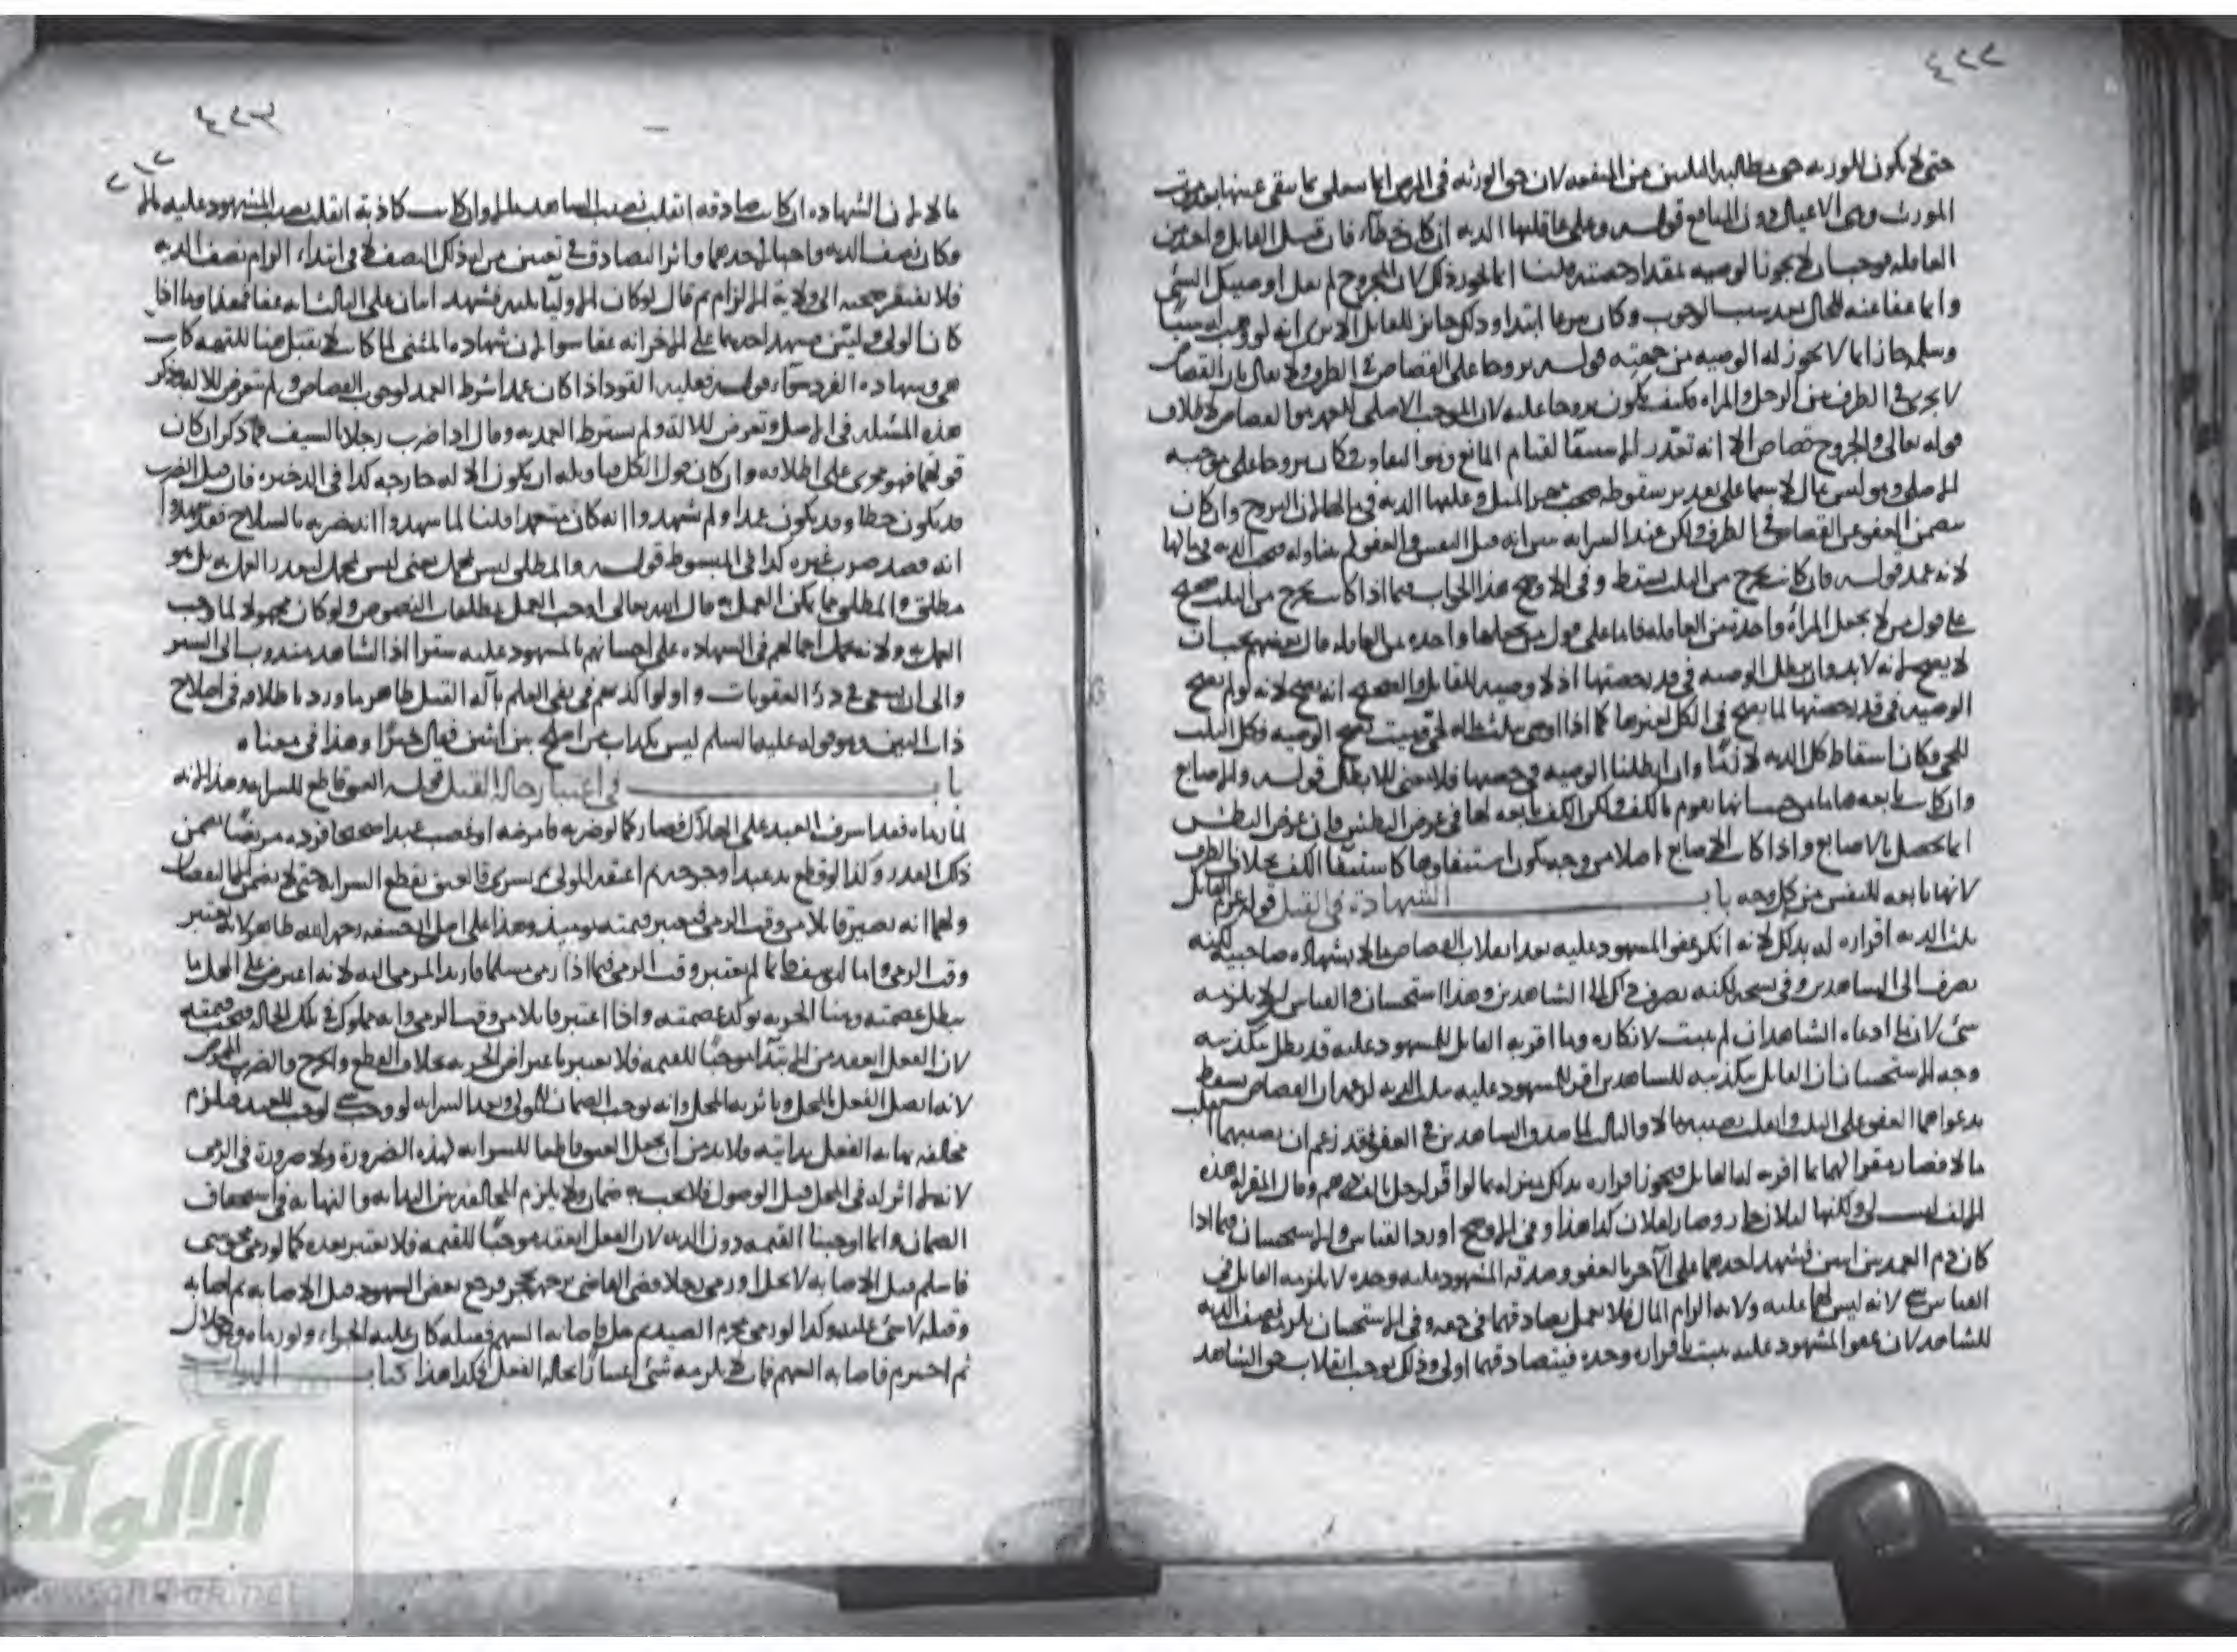 ٤٢٢
حتى لا يكون للورثه حق مطالبه الثلثين من المنفعه لان حق الورثه في المرض انما يتعلق بما يبقى عينها بعد موت
المورث وهي الاعيان دون المنافع قوله وعلى عاقلتها الديه ان كان خطأ فان قيل القاتل واحد من
العاقله فوجب ان لا يجوز الوصيه بمقدار حصته قلنا انما يجوز ذلك لان المجروح لم يقل اوصيت لك الشي
وانما عفا عنه المال بعد سبب الوجوب وكان تبرعا ابتداء وذلك جائز للقاتل الا ترى انه لو وهب له شيئا
وسلمه جاز انما لا يجوز له الوصيه من جهته قوله تزوجا على القصاص في الطرف ولا يقال بان القصاص
لا يجري في الطرف بين الرجل والمراه فكيف يكون تزوجا عليه لان الموجب الاصلي للعمد هو القصاص لاطلاق
قوله تعالى والجروح قصاص الا انه تعذر الاستيفاء لقيام المانع وهو التفاوت فكان تزوجا على موجبه
الاصلي وهو ليس بمال لا سيما على تقدير سقوطه فيجب مهر المثل وعليها الديه في مالها لان التزوج وان كان
يتضمن العفو عن القصاص في الطرف ولكن عند السرايه تبين انه قتل النفس والعفو لم يتناوله فتجب الديه في مالها
لانه عمد قوله فان كانت تخرج من الثلث يسقط وفي الاوضح هذا الجواب فيما اذا كانت تخرج من الثلث صحيح
على قول من لا يجعل المرأه واحدة من العاقله فاما على قول من يجعلها واحده من العاقله قال بعضهم يجب ان
لا يصح لانه لا بد وان يبطل الوصيه في قدر حصتها اذ لا وصيه للقاتل والصحيح انه يصح لانه لو لم يصح
الوصيه في قدر حصتها لما يصح في الكل لغيرها كما اذا اوصى بثلث ماله لحي وميت تصح الوصيه وكل الثلث
للحي وكان اسقاط كل الديه لازما وان ابطلنا الوصيه في حصتها فلا معنى للابطال قوله والاصابع
وان كانت تابعه
انما يحصل بالاصابع واذا كانت الاصابع اصلا من وجه يكون استيفاؤها كاستيفاء الكف بخلاف الطرف
لانها تابعه للنفس من كل وجه باب الشهادة في القتل قوله غرم القاتل
ثلث الديه اقراره له بذلك لانه انكر عفو المشهود عليه بعد انقلاب القصاص مالا بشهاده صاحبيه لكنه
يصرف الى الشاهدين وفي نسخه لكنه يصرف ذلك الى الشاهدين وهذا استحسان والقياس ان لا يلزمه
شئ لان ما ادعاه الشاهدان لم يثبت لانكاره وما اقر به القاتل للمشهود عليه قد بطل بتكذيبه
وجه الاستحسان ان القاتل بتكذيبه للشاهدين اقر للمشهود عليه بثلث الديه لزعمه ان القصاص سقط
بدعواهما العفو على الثالث وانقلب نصيبه مالا والثالث لما صدق الشاهدين في العفو فقد زعم ان نصيبهما انقلب
مالا فصار مقرا لهما بما اقر به له القاتل فيجوز اقراره بذلك بمنزله ما لو اقر لرجل بالف درهم وقال المقر له هذه
الالف ليست لي ولكنها لفلان جاز وصار لفلان كذا هذا وفي الاوضح اورد القياس والاستحسان فيما اذا
كان دم العمد بين اثنين فشهد احدهما على الآخر بالعفو وصدقه المشهود عليه وحده لا يلزمه القاتل في
القياس شئ لانه ليس لهما عليه ولايه الزام المال فلا يعمل تصادقهما في حقه وفي الاستحسان يلزمه نصف الديه
للشاهد لان عفو المشهود عليه يثبت باقراره وحده فبتصادقهما اولى وذلك يوجب انقلاب حق الشاهد
٤٢٣
مالا لان الشهاده ان كانت صادقه انقلب نصيب الشاهد مالا وان كانت كاذبة انقلب نصيب المشهود عليه مالا
وكان نصف الديه واجبا لاحدهما واثر التصادق في تعيين من له ذلك النصف لا في ابتداء الزام نصف الديه
فلا يفتقر صحته الى ولاية الالزام ثم قال لو كان الاولياء ثلثه فشهد اثنان على الثالث انه عفا فهذا وما اذا
كان الولي وليين فشهد احدهما على الاخر انه عفا سوا لان شهادة المثنى لما كانت لا تقبل هنا للتهمه كانت
هي وشهاده الفرد سواء قوله فعليه القود اذا كان عمدا شرط العمد لوجوب القصاص ولم يتعرض للاله وذكر
هذه المسئله في الاصل وتعرض للالة ولم يشترط العمديه وقال اذا ضرب رجلا بالسيف فما ذكر ان كان
قولهما فهو مجرى على اطلاقه وان كان قول الكل فتأويله ان يكون الاله جارحه كذا في الذخيره فان قيل الضرب
قد يكون خطا وقد يكون عمدا ولم يشهدوا انه كان متعمدا قلنا لما شهدوا انه ضربه بالسلاح فقد شهدوا
انه قصد ضرب غيره كذا في المبسوط قوله والمطلق ليس بمجمل يعني ليس بمجمل ليتعذر العمل به بل هو
مطلق والمطلق مما يمكن العمل به قال الله تعالى اوجب العمل بمطلقات النصوص ولو كان مجهولا لما وجب
العمل به ولانه يحمل اجمالهم في الشهاده على احسانهم بالمشهود عليه سترا اذ الشاهد مندوب الى الستر
والى ان يسعى في درء العقوبات واولوا كذبهم في نفي العلم بآلة القتل بظاهر ما ورد باطلاقه في اصلاح
ذات البين وهو قوله عليه السلم ليس بكذاب من اصلح بين اثنين فقال خيرا وهذا في معناه
باب في اعتبار حالة القتل قوله العتق قاطع للسرايه وهذا لانه
ذلك القدر وكذا لو قطع يد عبد او جرحه ثم اعتقه المولى ثم يسري فالعتق يقطع السرايه حتى لا يضمن الا النقصان
ولهما انه يصير قاتلا من وقت الرمي فيعتبر قيمته يومئذ وهذا على اصل ابي حنيفه رحمه الله ظاهر لانه يعتبر
وقت الرمي واما ابو يوسف فانما لم يعتبر وقت الرمي فيما اذا رمى مسلما فارتد المرمي اليه لانه اعترض على المحل ما
يبطل عصمته وهنا الحريه توكد عصمته واذا اعتبر قاتلا من وقت الرمي وانه مملوك في تلك الحاله فيجب قيمته
لان الفعل انعقد من الابتداء موجبا للقيمه فلا يعتبر باعتراض الحريه بخلاف القطع والجرح والضرب
لانه اتصل الفعل بالمحل وباثر به المحل وانه يوجب الضمان للمولى وبعد السرايه لو وجب شئ لوجب للعبد فيلزم
مخالفه نهايه الفعل بدايته فلا بد من ان يجعل العتق قاطعا للسرايه لهذه الضرورة ولا ضرورة في الرمي
لانه لا اثر له في المحل قبل الوصول فلا يجب به ضمان ولا يلزم المخالفه بين البدايه والنهايه في استحقاق
الضمان وانما اوجبنا القيمه دون الديه لان الفعل انعقد موجبا للقيمه فلا يعتبر بعده كما لو رمى مجوسي
فاسلم قبل الاصابه لا يحل او رمى رجلا قضى القاضي برجمه بحجر فرجع بعض الشهود قبل الاصابه ثم اصابه
وقتله لا شئ عليه وكذا لو رمى محرم الصيد ثم حل فاصابه السهم فقتله كان عليه الجزاء ولو رماه وهو حلال
ثم احرم فاصابه السهم فانه لا يلزمه شئ اعتبارا بحالة الفعل فكذا هذا كتاب الديات
الألوكة